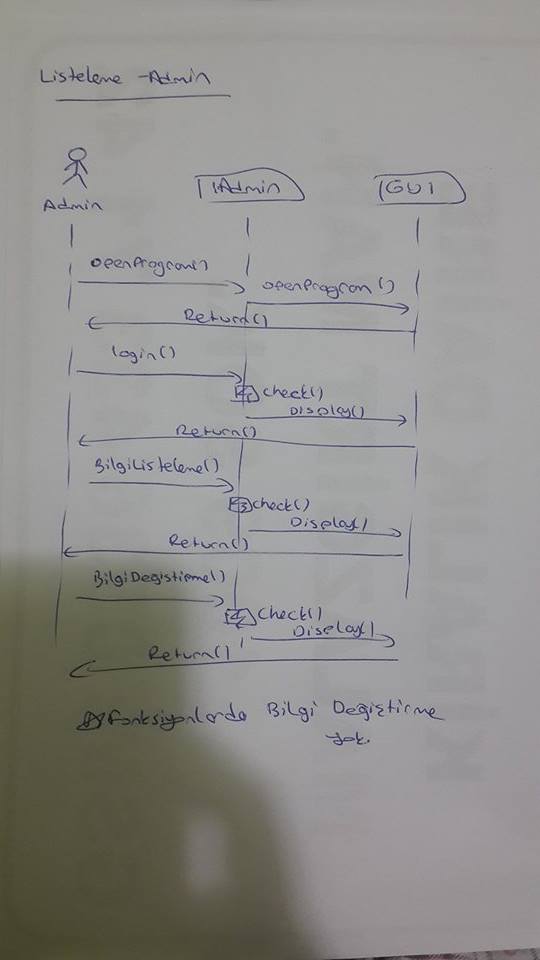 Listeleme - Admin
Admin
IAdmin
GUI
openProgram()
openProgram()
Return()
login()
check()
Display()
Return()
BilgiListeleme()
check()
Display()
Return()
BilgiDegistirme()
check()
Display()
Return()
Fonksiyonlarda Bilgi Degiştirme
yok.